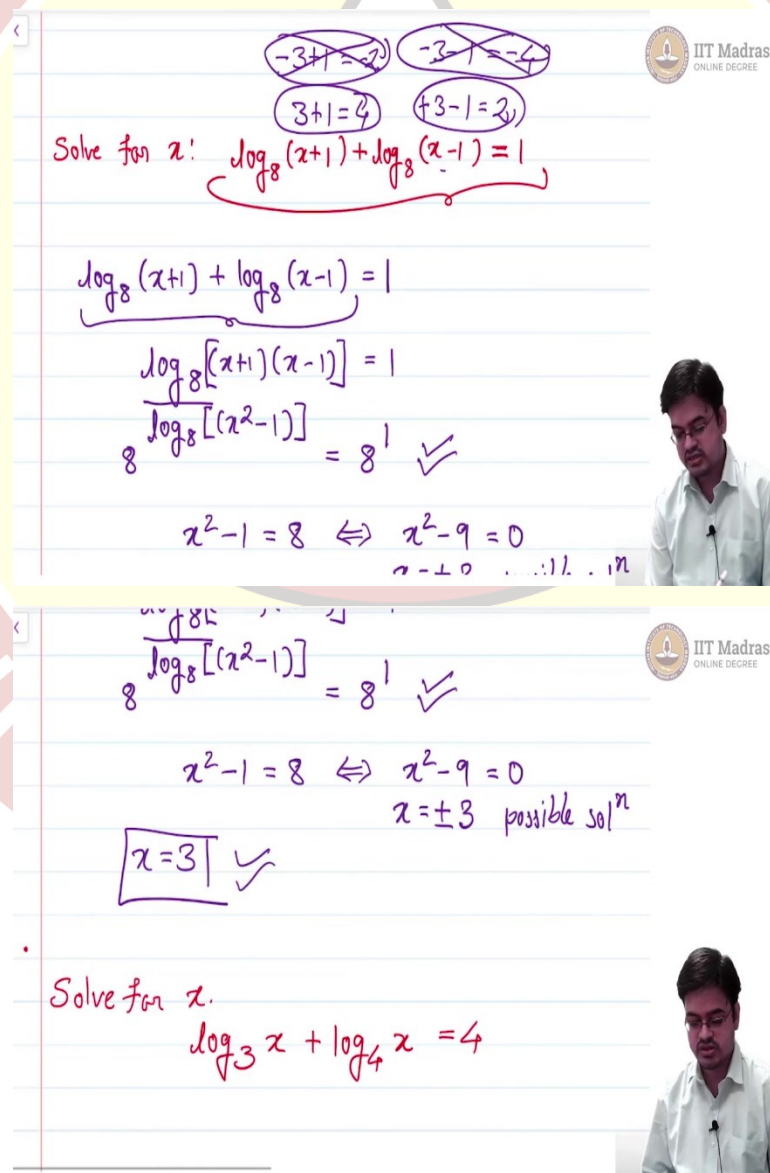 -3+1=-2 -3-1=-4
IIT Madras
ONLINE DEGREE
3+1=4 +3-1=2
Solve for x: log₈(x+1)+log₈(x-1)=1
log₈(x+1) + log₈(x-1) = 1
log₈[(x+1)(x-1)] = 1
8^log₈[(x²-1)] = 8¹ ✓
x²-1=8 ⇔ x²-9=0
IIT Madras
ONLINE DEGREE
8^log₈[(x²-1)] = 8¹ ✓
x²-1=8 ⇔ x²-9=0
x=±3 possible solⁿ
x=3 ✓
Solve for x.
log₃x + log₄x = 4